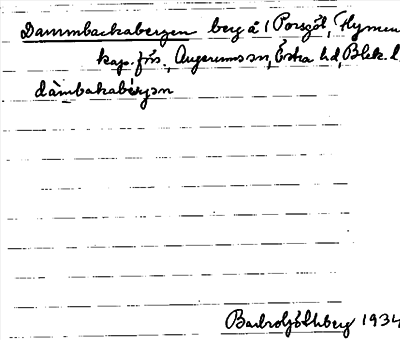 Dammbackabergen berg å 1 Porsgöl, Flymen
kap.förs., Augerums sn, Östra hd, Blek. l
dàmbakabǽrjən
1934